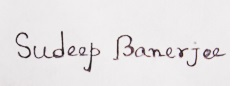 Sudeep Banerjee